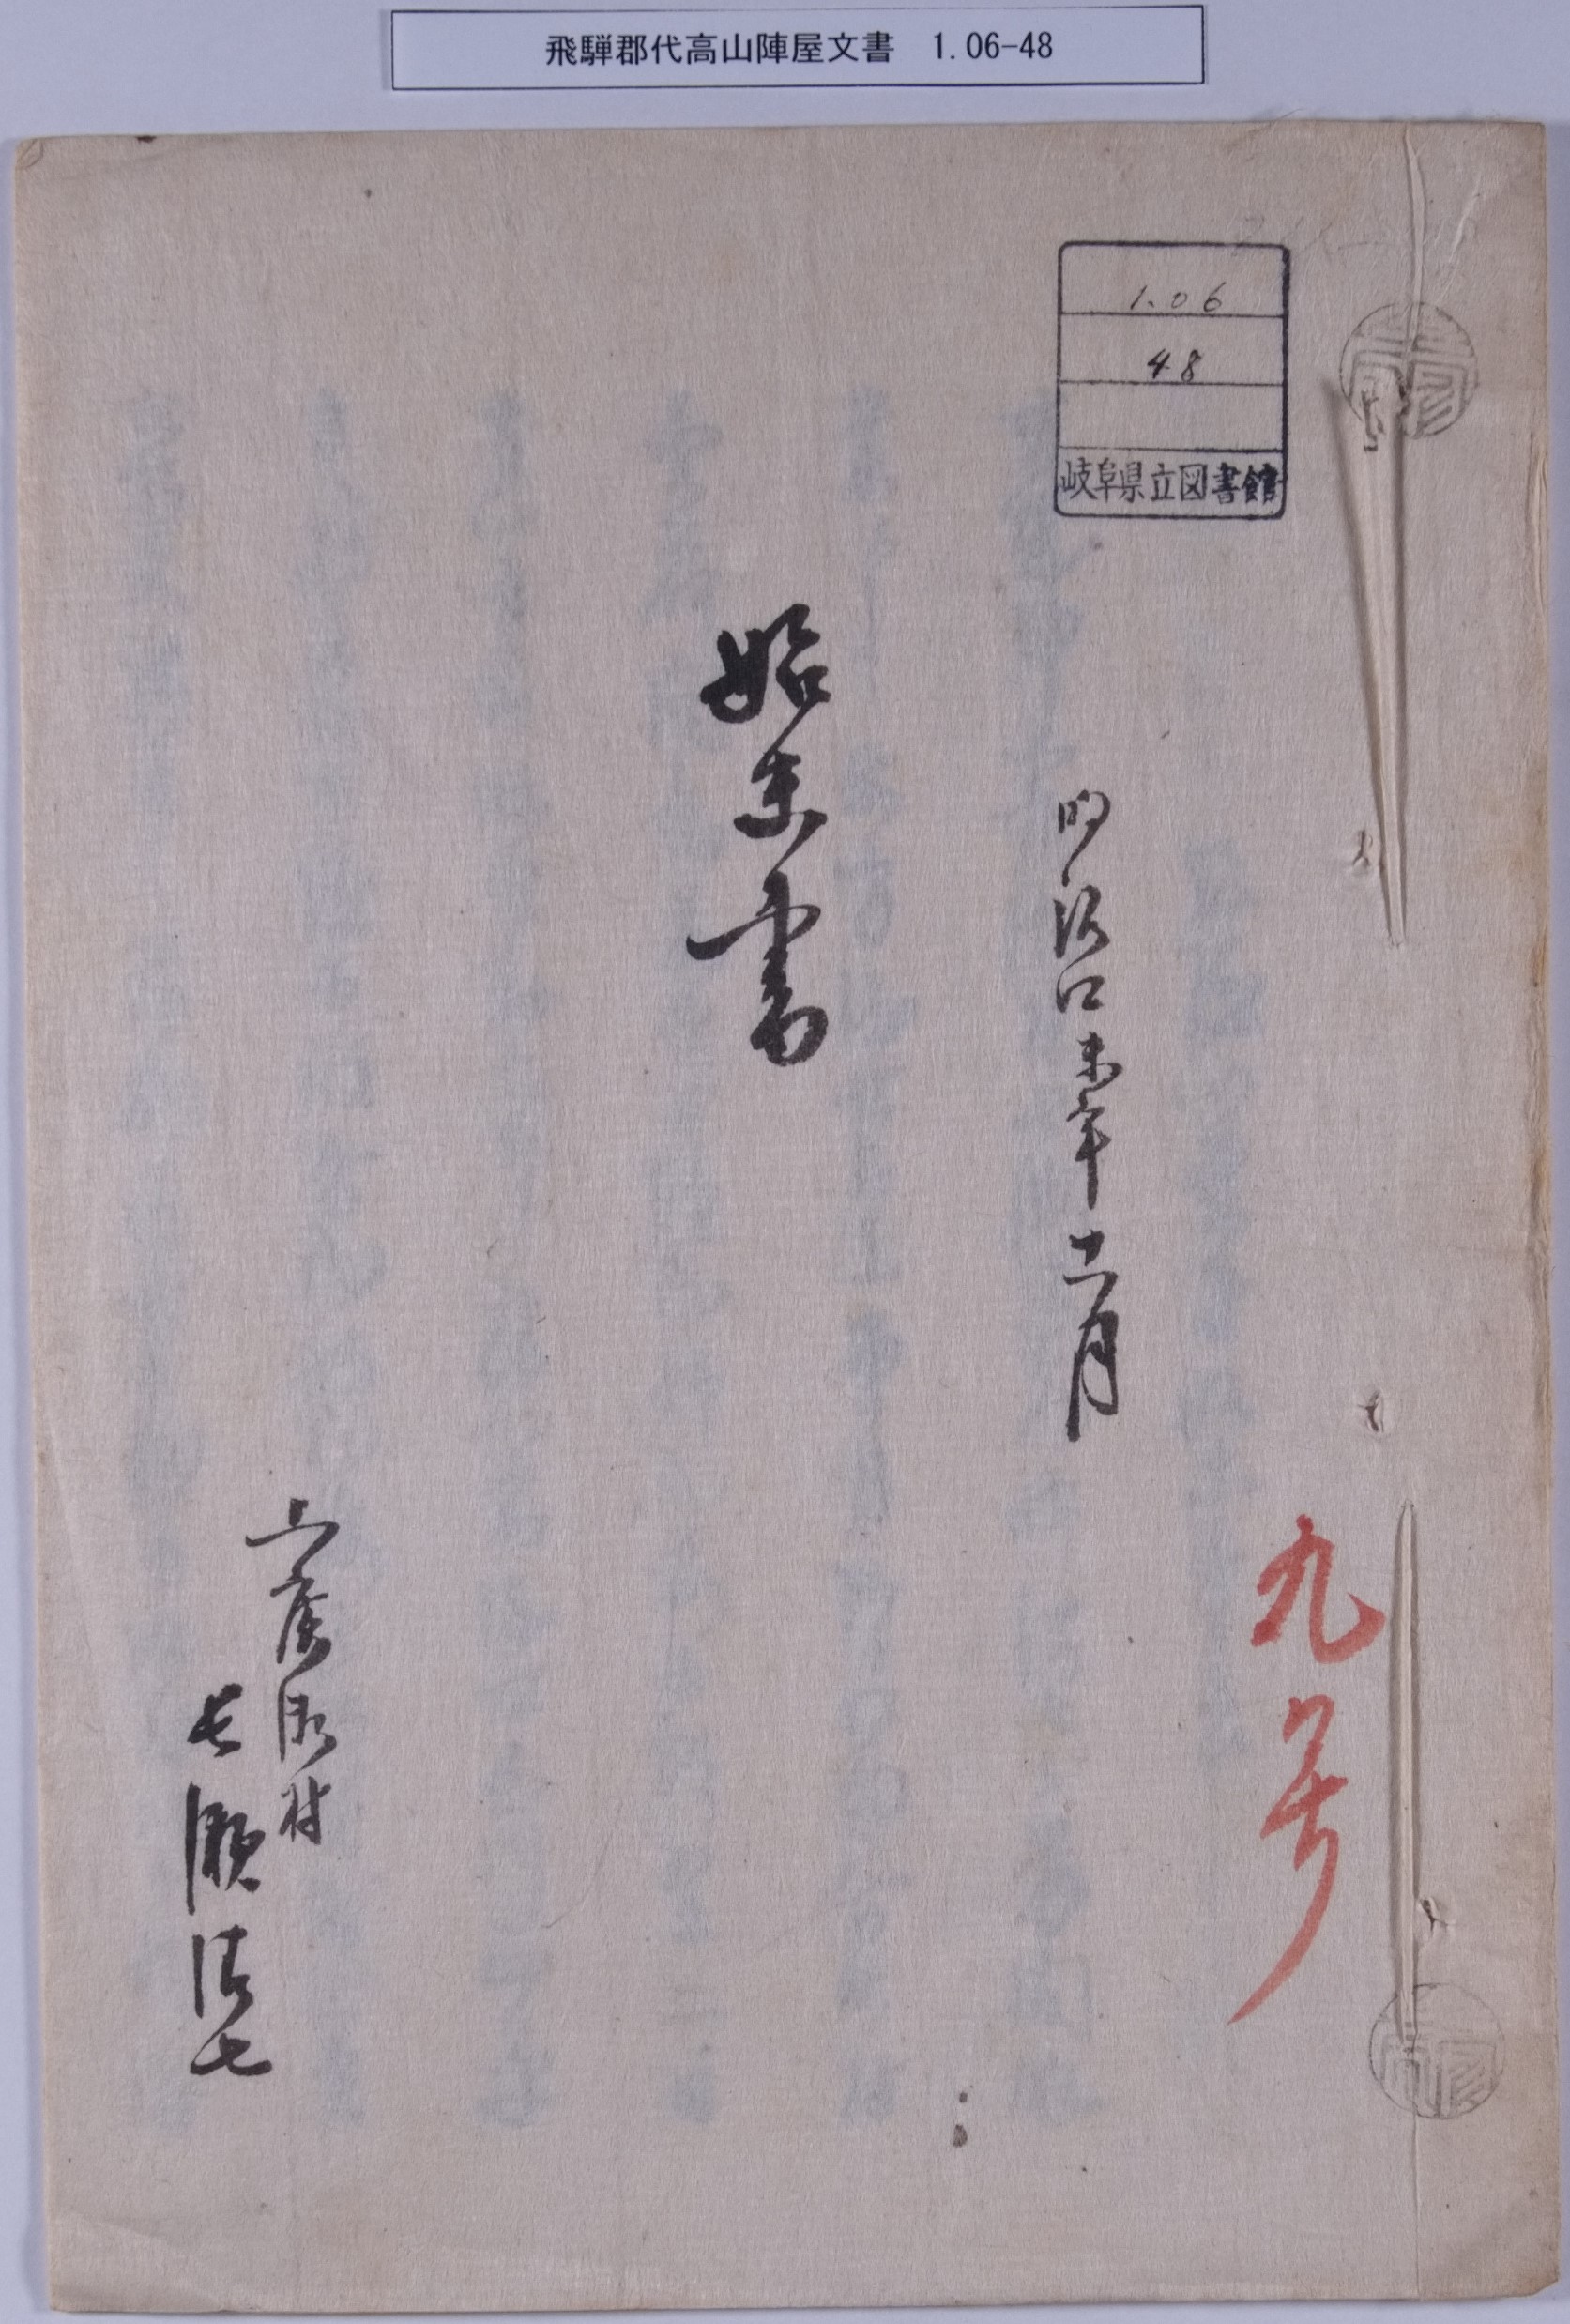 飛騨郡代高山陣屋文書 1.06-48
1.06
48
岐阜県立図書館
九号
明治四未年十二月
始末書
上廣瀬村
長瀬清七